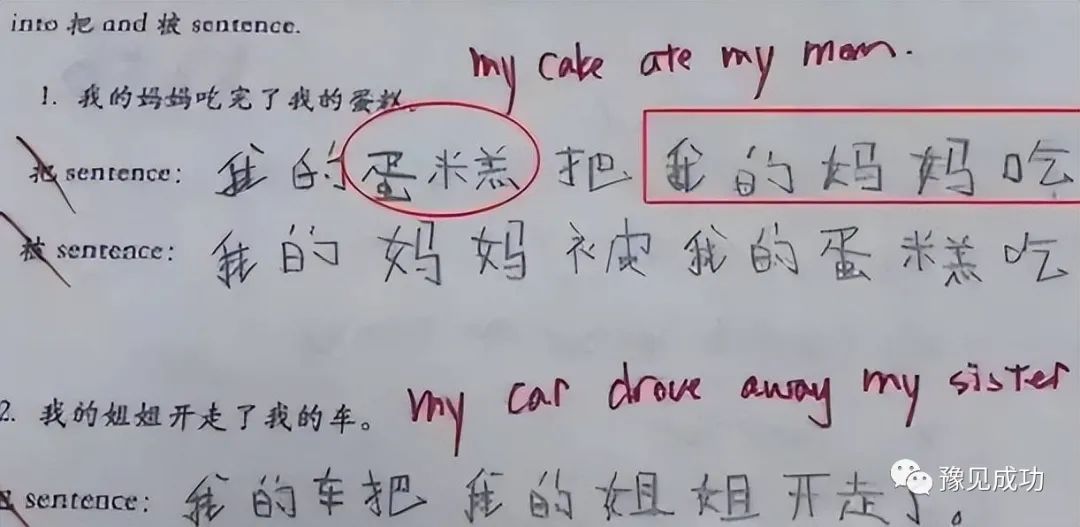 into 把 and 被 sentence.
my cake ate my mom.
1. 我的妈妈吃完了我的蛋糕。
把 sentence: 我的蛋糕把我的妈妈吃
被 sentence: 我的妈妈被我的蛋糕吃
my car drove away my sister
2. 我的姐姐开走了我的车。
sentence: 我的车把我的姐姐开走了。
豫见成功